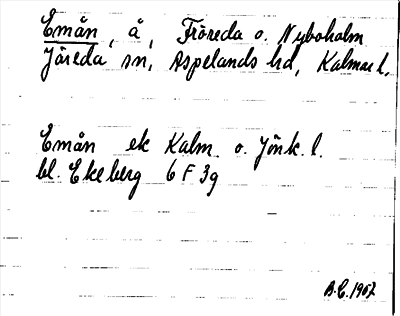 Emån, å, Fröreda o. Nyboholm
Järeda sn, Aspelands hd, Kalmar l.
Emån ek Kalm. o. Jönk. l.
bl. Ekeberg 6 F 3g
B.E. 1967